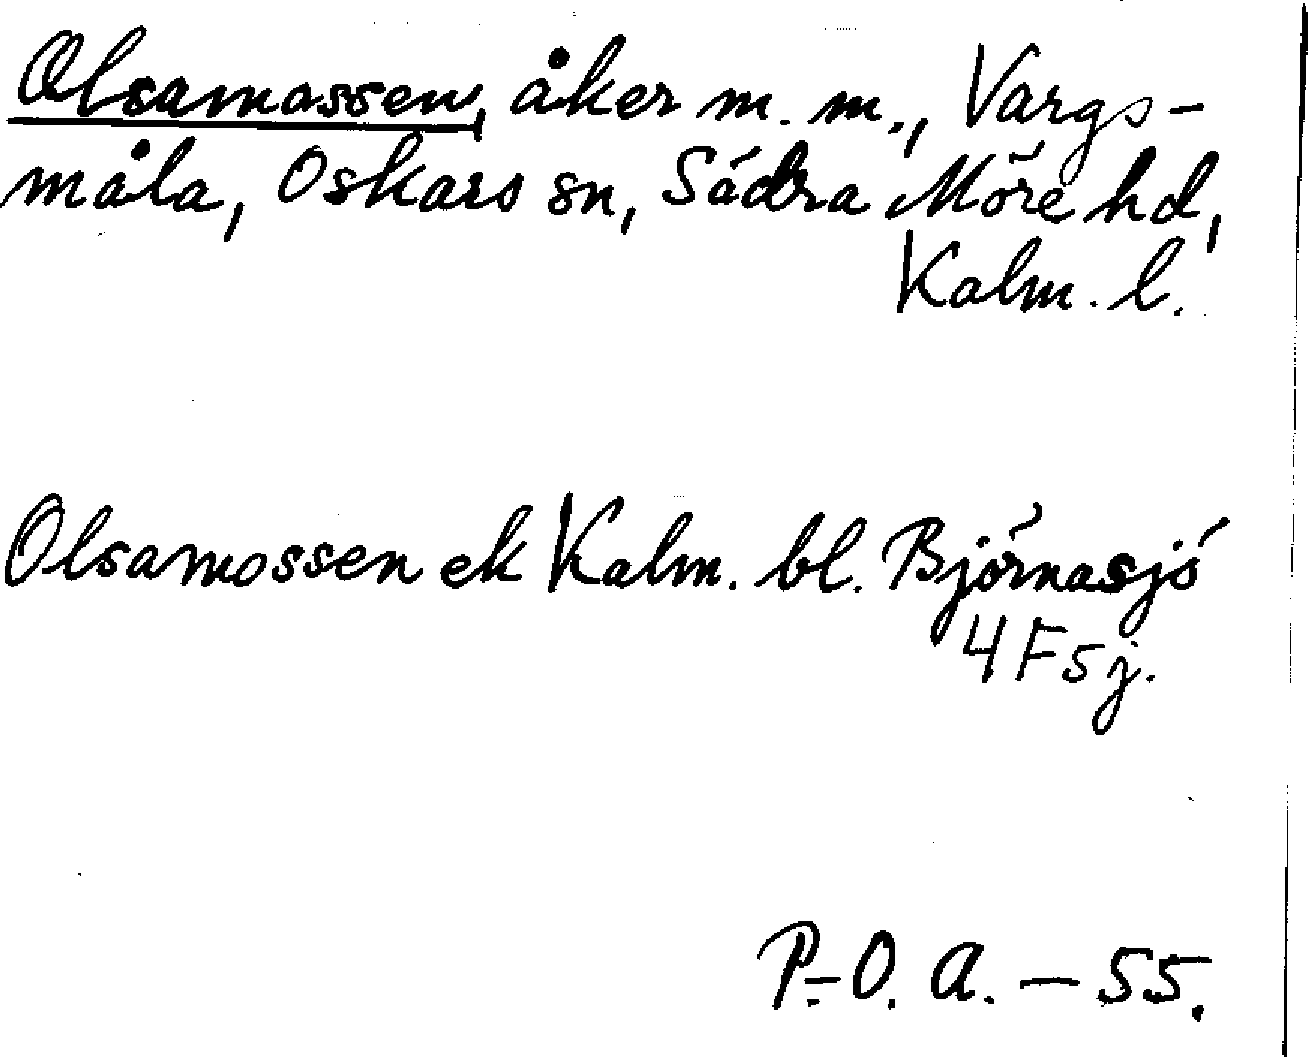 Olsamossen, åker m. m., Vargs-
måla, Oskars sn, Södra Möre hd,
Kalm. l.
Olsamossen ek Kalm. bl. Björnasjö
4 F 5 j.
P.-O. A. – 55.